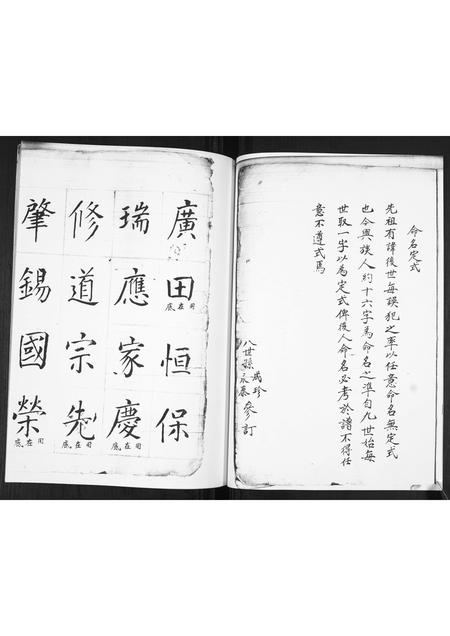 命名定式
先祖有諱後世每誤犯之率以任意命名無定式
也今與族人約十六字為命名之準自九世始每
世取一字以為定式俾後人命名必考於譜不得任
意不遵式焉
八世孫 珍 永泰 參訂
廣田恒保
用在底
瑞應家慶
用在底
修道宗先
用在底
肇錫國榮
用在底